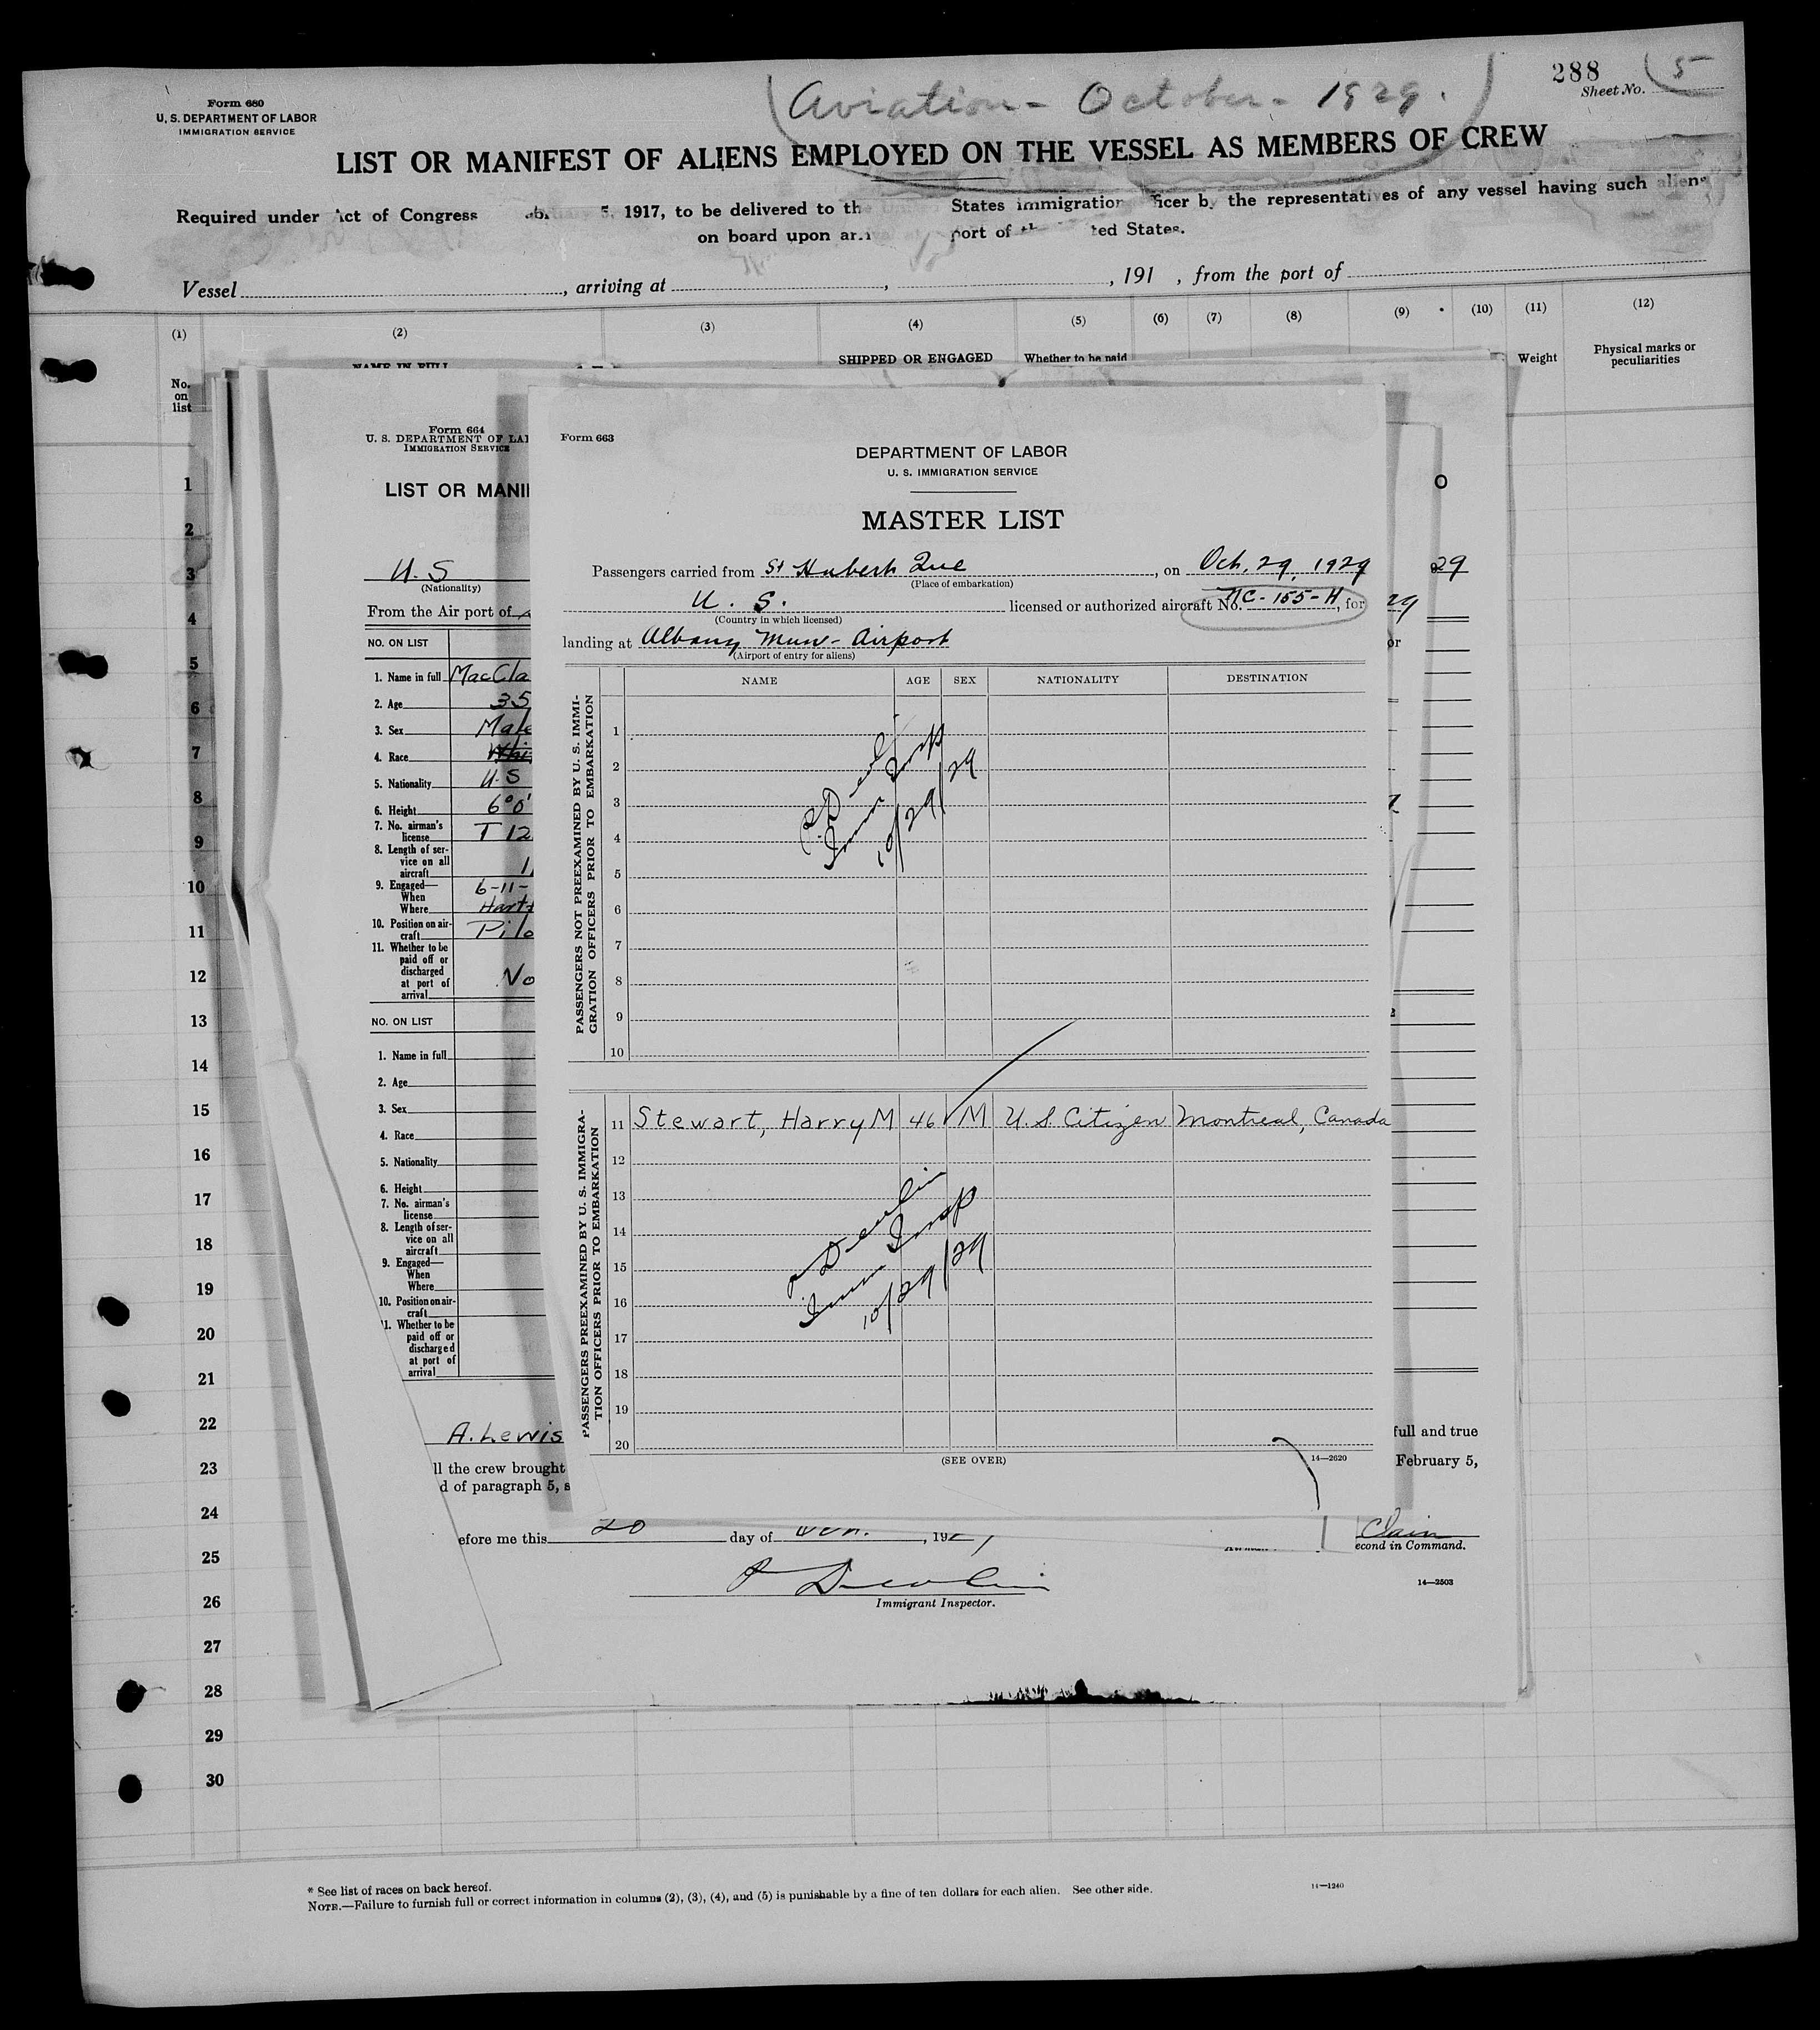 Aviation - October - 1929.
288
5
Sheet No.
Form 680
U. S. DEPARTMENT OF LABOR
IMMIGRATION SERVICE
LIST OR MANIFEST OF ALIENS EMPLOYED ON THE VESSEL AS MEMBERS OF CREW
Required under Act of Congress 5, 1917, to be delivered to th States immigration ficer by the representatives of any vessel having such aliens
on board upon port of ted States.
Vessel , arriving at , , 191 , from the port of
(1) (2) (3) (4) (5) (6) (7) (8) (9) (10) (11) (12)
NAME IN FULL SHIPPED OR ENGAGED Whether to be paid Weight Physical marks or
peculiarities
No.
on
list
1
2
3
4
5
6
7
8
9
10
11
12
13
14
15
16
17
18
19
20
21
22
23
24
25
26
27
28
29
30
Form 664
U. S. DEPARTMENT OF LA
IMMIGRATION SERVICE
LIST OR MANI
O
U. S
29
(Nationality)
From the Air port of
29
or
NO. ON LIST
1. Name in full MacCla
2. Age 35
3. Sex Male
4. Race Whi
5. Nationality U. S
6. Height 6°0'
7. No. airman's
license T 12
8. Length of ser-
vice on all
aircraft
9. Engaged—
When 6-11-
Where Hartf
10. Position on air-
craft Pilo
11. Whether to be
paid off or
discharged
at port of
arrival No
NO. ON LIST
1. Name in full
2. Age
3. Sex
4. Race
5. Nationality
6. Height
7. No. airman's
license
8. Length of ser-
vice on all
aircraft
9. Engaged—
When
Where
10. Position on air-
craft
11. Whether to be
paid off or
discharged
at port of
arrival
A. Lewis
full and true
ll the crew brought
February 5,
d of paragraph 5, s
efore me this day of , 192
Clain
econd in Command.
P Devlin
Immigrant Inspector.
14—2503
Form 663
DEPARTMENT OF LABOR
U. S. IMMIGRATION SERVICE
MASTER LIST
Passengers carried from St Hubert Que , on Oct. 29, 1929
(Place of embarkation)
U. S. licensed or authorized aircraft No. NC-155-H, for
(Country in which licensed)
landing at Albany Mun- Airport
(Airport of entry for aliens)
NAME AGE SEX NATIONALITY DESTINATION
PASSENGERS NOT PREEXAMINED BY U. S. IMMI-
GRATION OFFICERS PRIOR TO EMBARKATION
1
2
3
4
5
6
7
8
9
10
P Devlin
Imm Insp
10/29/29
PASSENGERS PREEXAMINED BY U. S. IMMIGRA-
TION OFFICERS PRIOR TO EMBARKATION
11 Stewart, Harry M 46 M U. S. Citizen Montreal, Canada
12
13
14
15
16
17
18
19
20
P Devlin
Imm Insp
10/29/29
(SEE OVER)
14—2620
* See list of races on back hereof.
NOTE.—Failure to furnish full or correct information in columns (2), (3), (4), and (5) is punishable by a fine of ten dollars for each alien. See other side.
14—1240